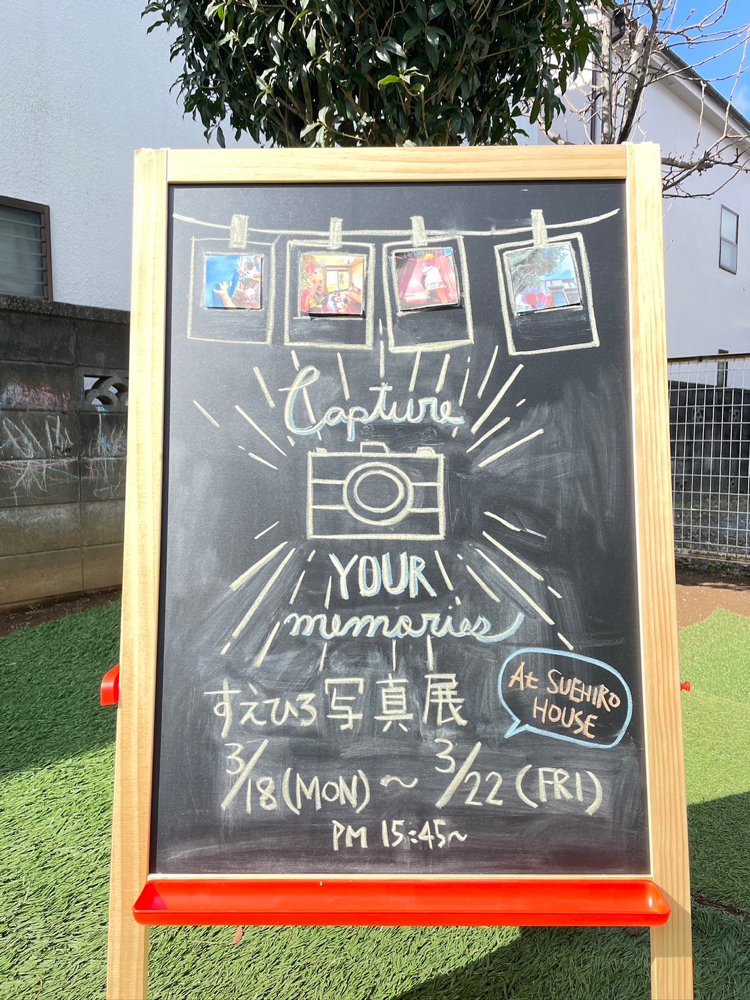 Capture
YOUR
memories
すえひろ写真展
At SUEHIRO
HOUSE
3/18(MON)～3/22(FRI)
PM 15:45~